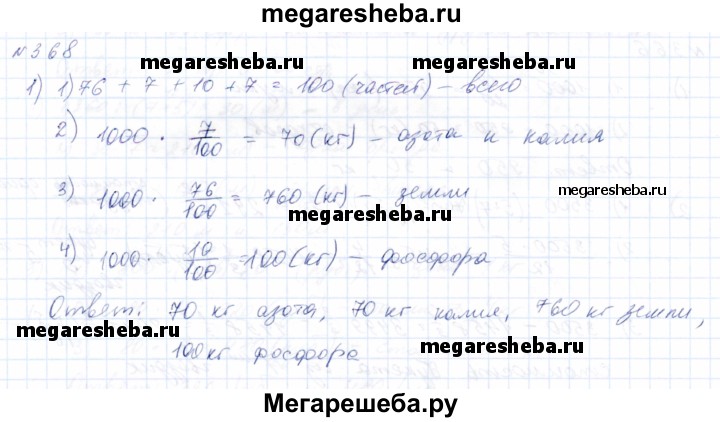 megaresheba.ru
№368
megaresheba.ru megaresheba.ru
1) 1) 76 + 7 + 10 + 7 = 100 (частей) – всего
2) 1000 · 7/100 = 70 (кг) – азота и калия
3) 1000 · 76/100 = 760 (кг) – земли
megaresheba.ru
megaresheba.ru
4) 1000 · 10/100 = 100 (кг) – фосфора
Ответ: 70 кг азота, 70 кг калия, 760 кг земли,
megaresheba.ru
100 кг фосфора
megaresheba.ru
Мегарешеба.ру